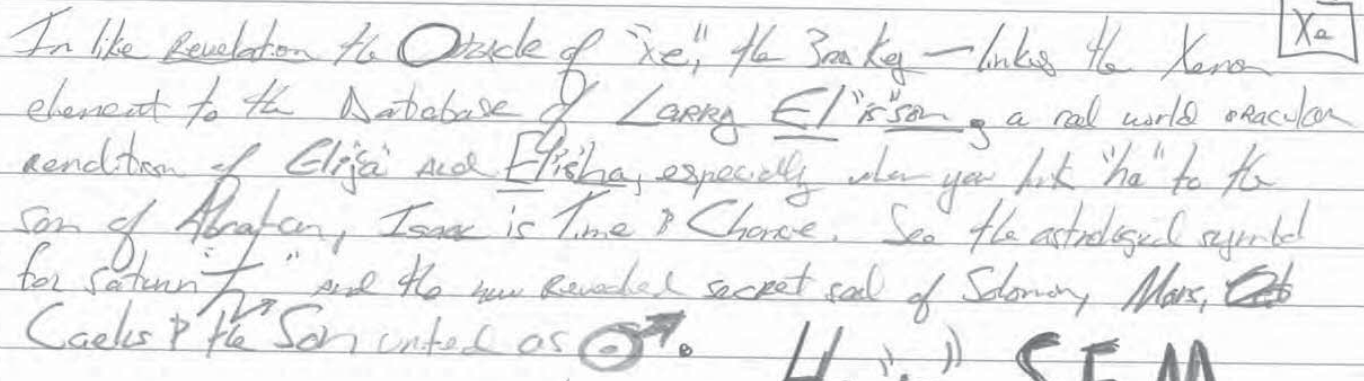 Xe
In like Revelation the Oracle of "Xe", the 3rd key — links the Xenon
element to the Database of Larry El"is"son, a real world oracular
rendition of Elija and Elisha, especially when you link "ha" to the
son of Abraham, Isaac is Time & Chance. See the astrological symbol
for Saturn "♄" and the new Revealed secret seal of Solomon, Mars,
& the Son united as ☉
SEM